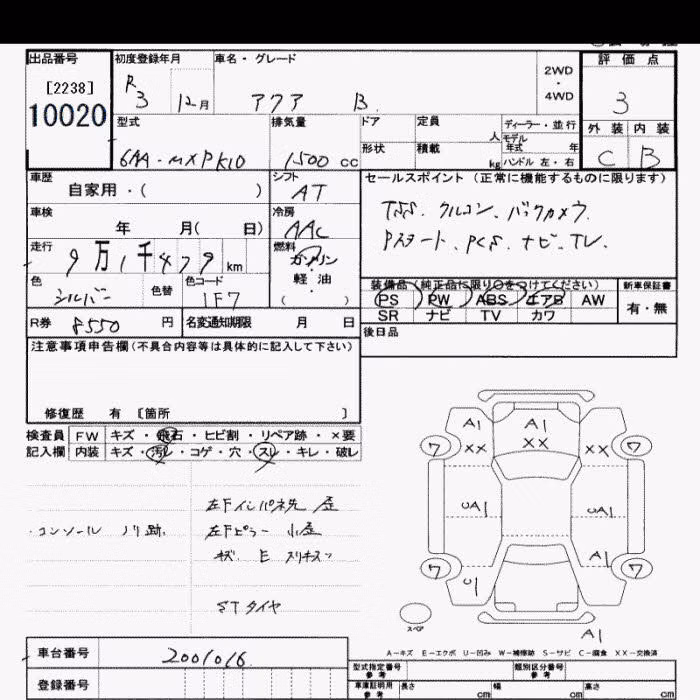 出品番号 初度登録年月 車名・グレード 2WD・4WD 評価点
[2238] R3 12月 アクア B 3
10020
型式 排気量 ドア 定員 人 ディーラー・並行 外装 内装
モデル年式 年
6AA-MXPK10 1500 cc 形状 積載 kg ハンドル 左・右 C B
車歴 シフト セールスポイント (正常に機能するものに限ります)
自家用・( ) AT
TSS. クルコン. バックカメラ.
車検 冷房
年 月( 日) AAC
Pスタート. PCS. ナビ. TV.
走行 燃料
9万1千479 km ガソリン・軽油・( )
装備品 (純正品に限り○をつけてください) 新車保証書
色 色替 色コード
シルバー 1F7
PS PW ABS エアB AW 有・無
SR ナビ TV カワ
R券 8550 円 名変通知期限 月 日
後日品
注意事項申告欄(不具合内容等は具体的に記入して下さい)
修復歴 有 [箇所 ]
検査員 FW キズ・飛石・ヒビ割・リペア跡・×要
記入欄 内装 キズ・汚レ・コゲ・穴・スレ・キレ・破レ
左F インパネ先 歪
・コンソール ノリ跡. 左Fピラー 小歪
STタイヤ
A1 A1
XX XX XX
ワ ワ
UA1 UA1
A1
ワ U1 ワ
スペア
A1
A-キズ E-エクボ U-凹み W-補修跡 S-サビ C-腐食 XX-交換済
車台番号 2001016
型式指定番号 参考 類別区分番号 参考
登録番号
車庫証明用 参考 長さ cm 幅 cm 高さ cm